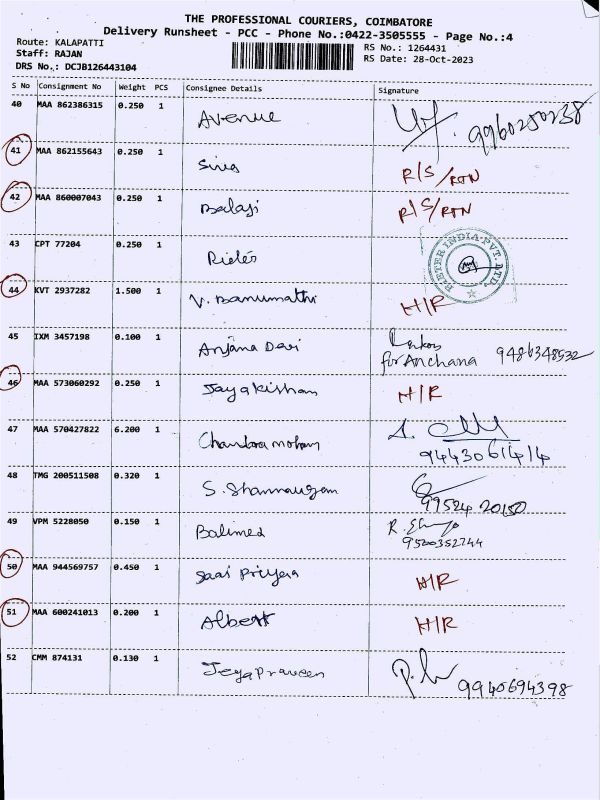 THE PROFESSIONAL COURIERS, COIMBATORE
Delivery Runsheet - PCC - Phone No.:0422-3505555 - Page No.:4
Route: KALAPATTI RS No.: 1264431
Staff: RAJAN RS Date: 28-Oct-2023
DRS No.: DCJB126443104
S No Consignment No Weight PCS Consignee Details Signature
40 MAA 862386315 0.250 1 Avenue 9960250238
41 MAA 862155643 0.250 1 Siva R/S/RTN
42 MAA 860007043 0.250 1 Balaji R/S/RTN
43 CPT 77204 0.250 1 Rieter INDIA PVT. LTD.
44 KVT 2937282 1.500 1 V. Banumathi H/R
45 IXM 3457198 0.100 1 Anjana Devi for Anchana 9486348532
46 MAA 573060292 0.250 1 Jayakishan H/R
47 MAA 570427822 6.200 1 Chandra mohan 9443061414
48 TMG 200511508 0.320 1 S. Shanmugam 99524 20150
49 VPM 5228050 0.150 1 Balimed 9500352744
50 MAA 944569757 0.450 1 Saai Priyera H/R
51 MAA 600241013 0.200 1 Albert H/R
52 CMM 874131 0.130 1 Jeya Praveen 9940694398